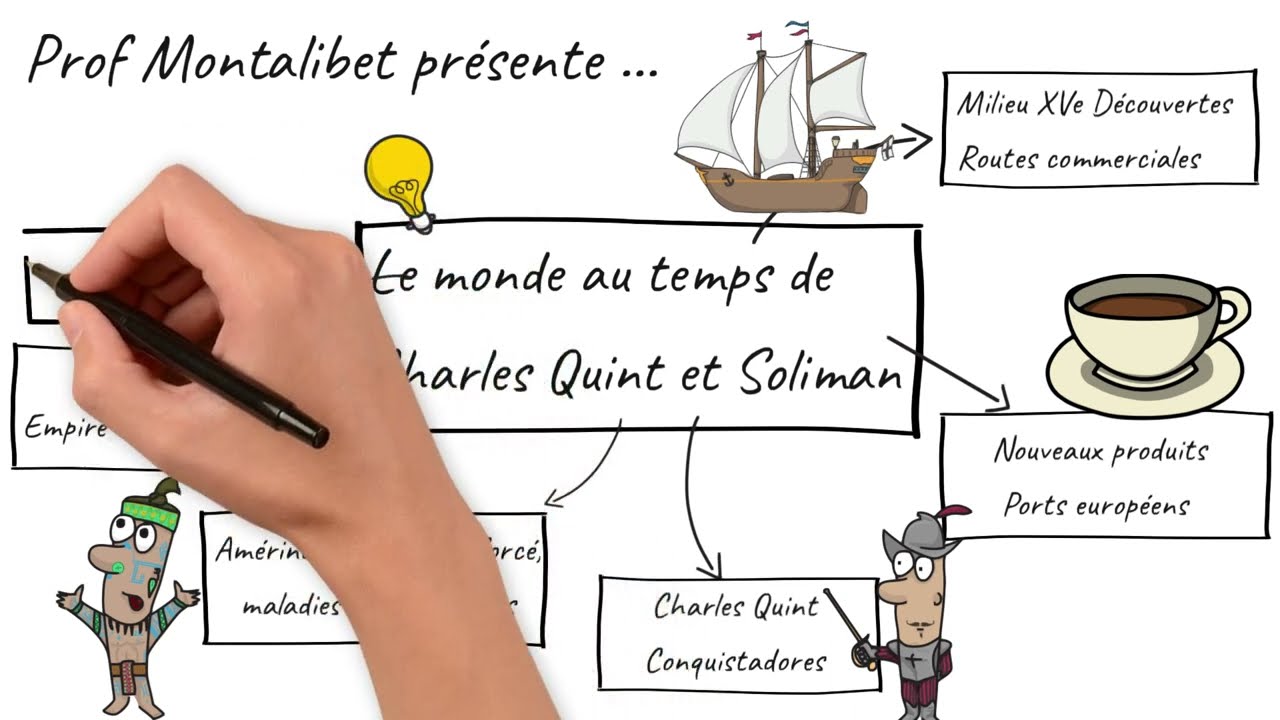 Prof Montalibet présente ...
Milieu XVe Découvertes
Routes commerciales
Le monde au temps de
Charles Quint et Soliman
Nouveaux produits
Ports européens
Empire
maladies
Charles Quint
Conquistadores